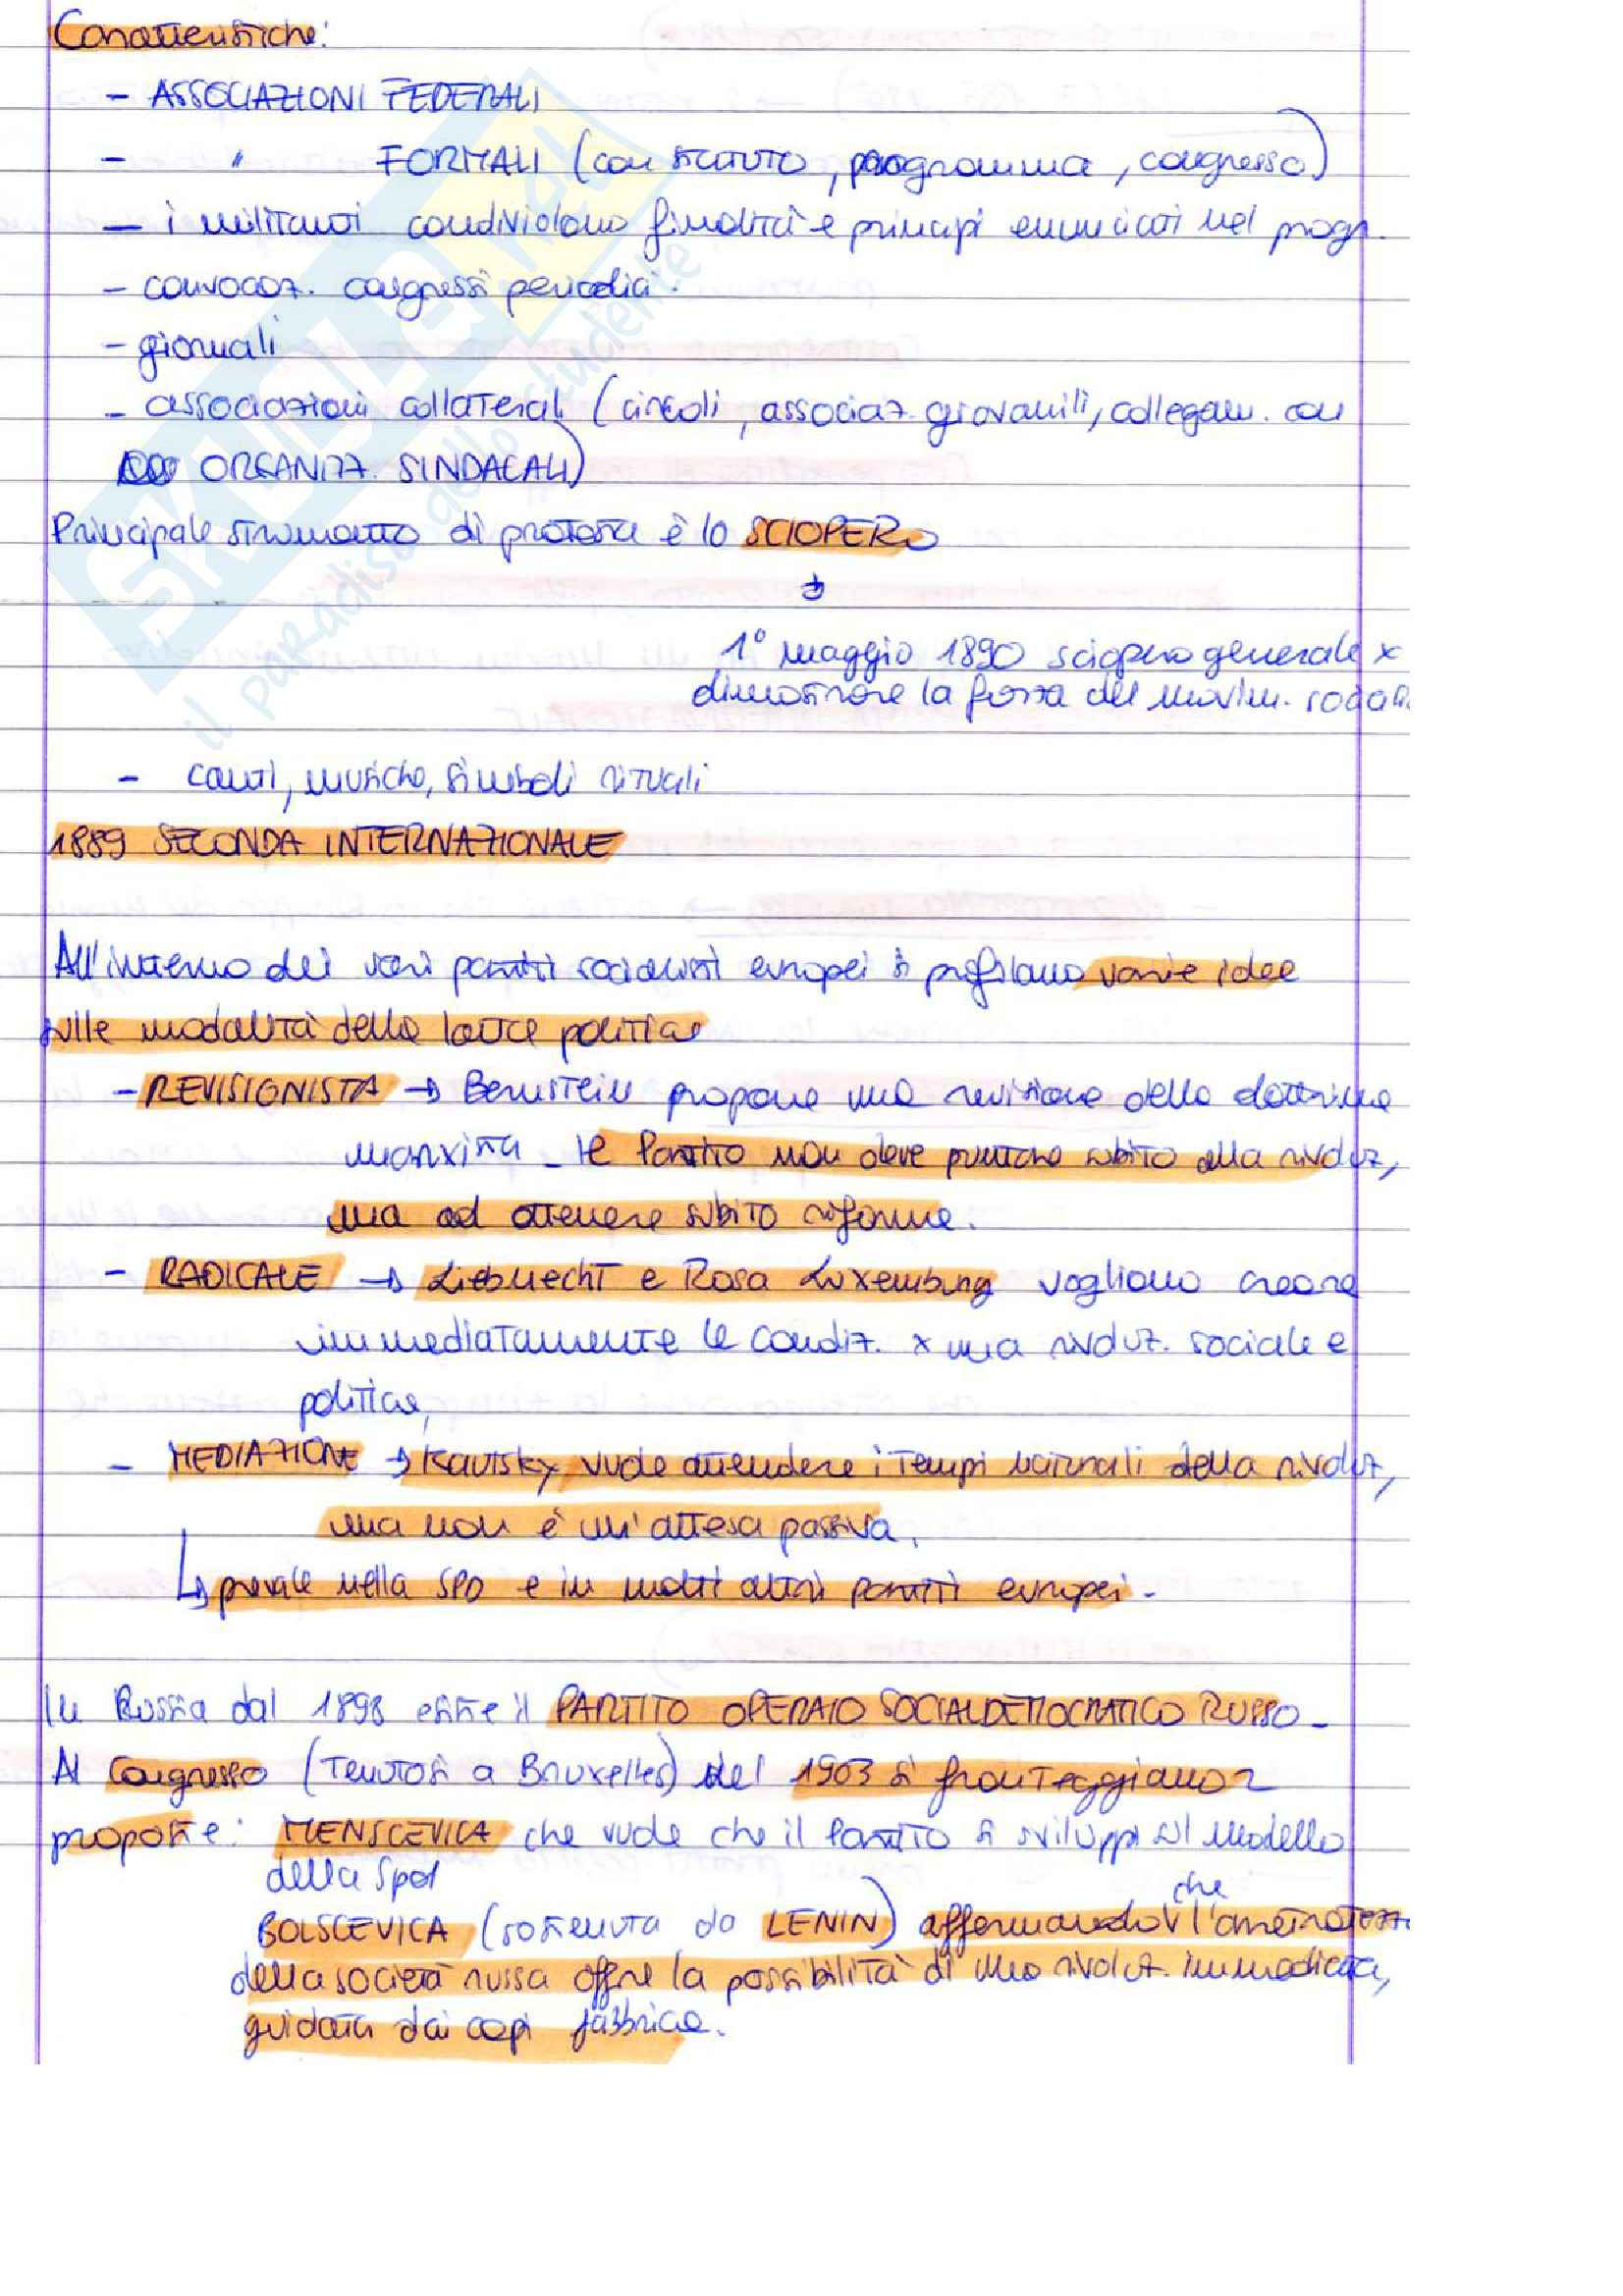 Caratteristiche:
- ASSOCIAZIONI FEDERALI
- " FORMALI (con statuto, programma, congresso)
- i militanti condividono finalità e principi enunciati nel progr.
- convocaz. congressi periodici.
- giornali
- associazioni collaterali (circoli, associaz. giovanili, collegam. con
ORGANIZZ. SINDACALI)
Principale strumento di protesta è lo SCIOPERO
↓
1° maggio 1890 sciopero generale x
dimostrare la forza del movim. social.
- canti, musiche, simboli rituali
1889 SECONDA INTERNAZIONALE
All'interno dei vari partiti socialisti europei si profilano varie idee
sulle modalità della lotta politica
- REVISIONISTA → Bernstein propone una revisione della dottrina
marxista - Il Partito non deve puntare subito alla rivoluz,
ma ad ottenere subito riforme.
- RADICALE → Liebnecht e Rosa Luxemburg vogliono creare
immediatamente le condiz. x una rivoluz. sociale e
politica,
- MEDIAZIONE → Kautsky vuole attendere i tempi naturali della rivoluz,
ma non è un'attesa passiva.
↳ prevale nella SPD e in molti altri partiti europei -
In Russia dal 1898 esiste il PARTITO OPERAIO SOCIALDEMOCRATICO RUSSO -
Al Congresso (tenutosi a Bruxelles) del 1903 si fronteggiano 2
proposte: MENSCEVICA che vuole che il Partito si sviluppi sul modello
della Spd
BOLSCEVICA (sostenuta da LENIN) affermando che l'arretratezza
della società russa offre la possibilità di una rivoluz. immediata,
guidata dai capi fabbrica.
SKUOLA.net
il paradiso dello studente